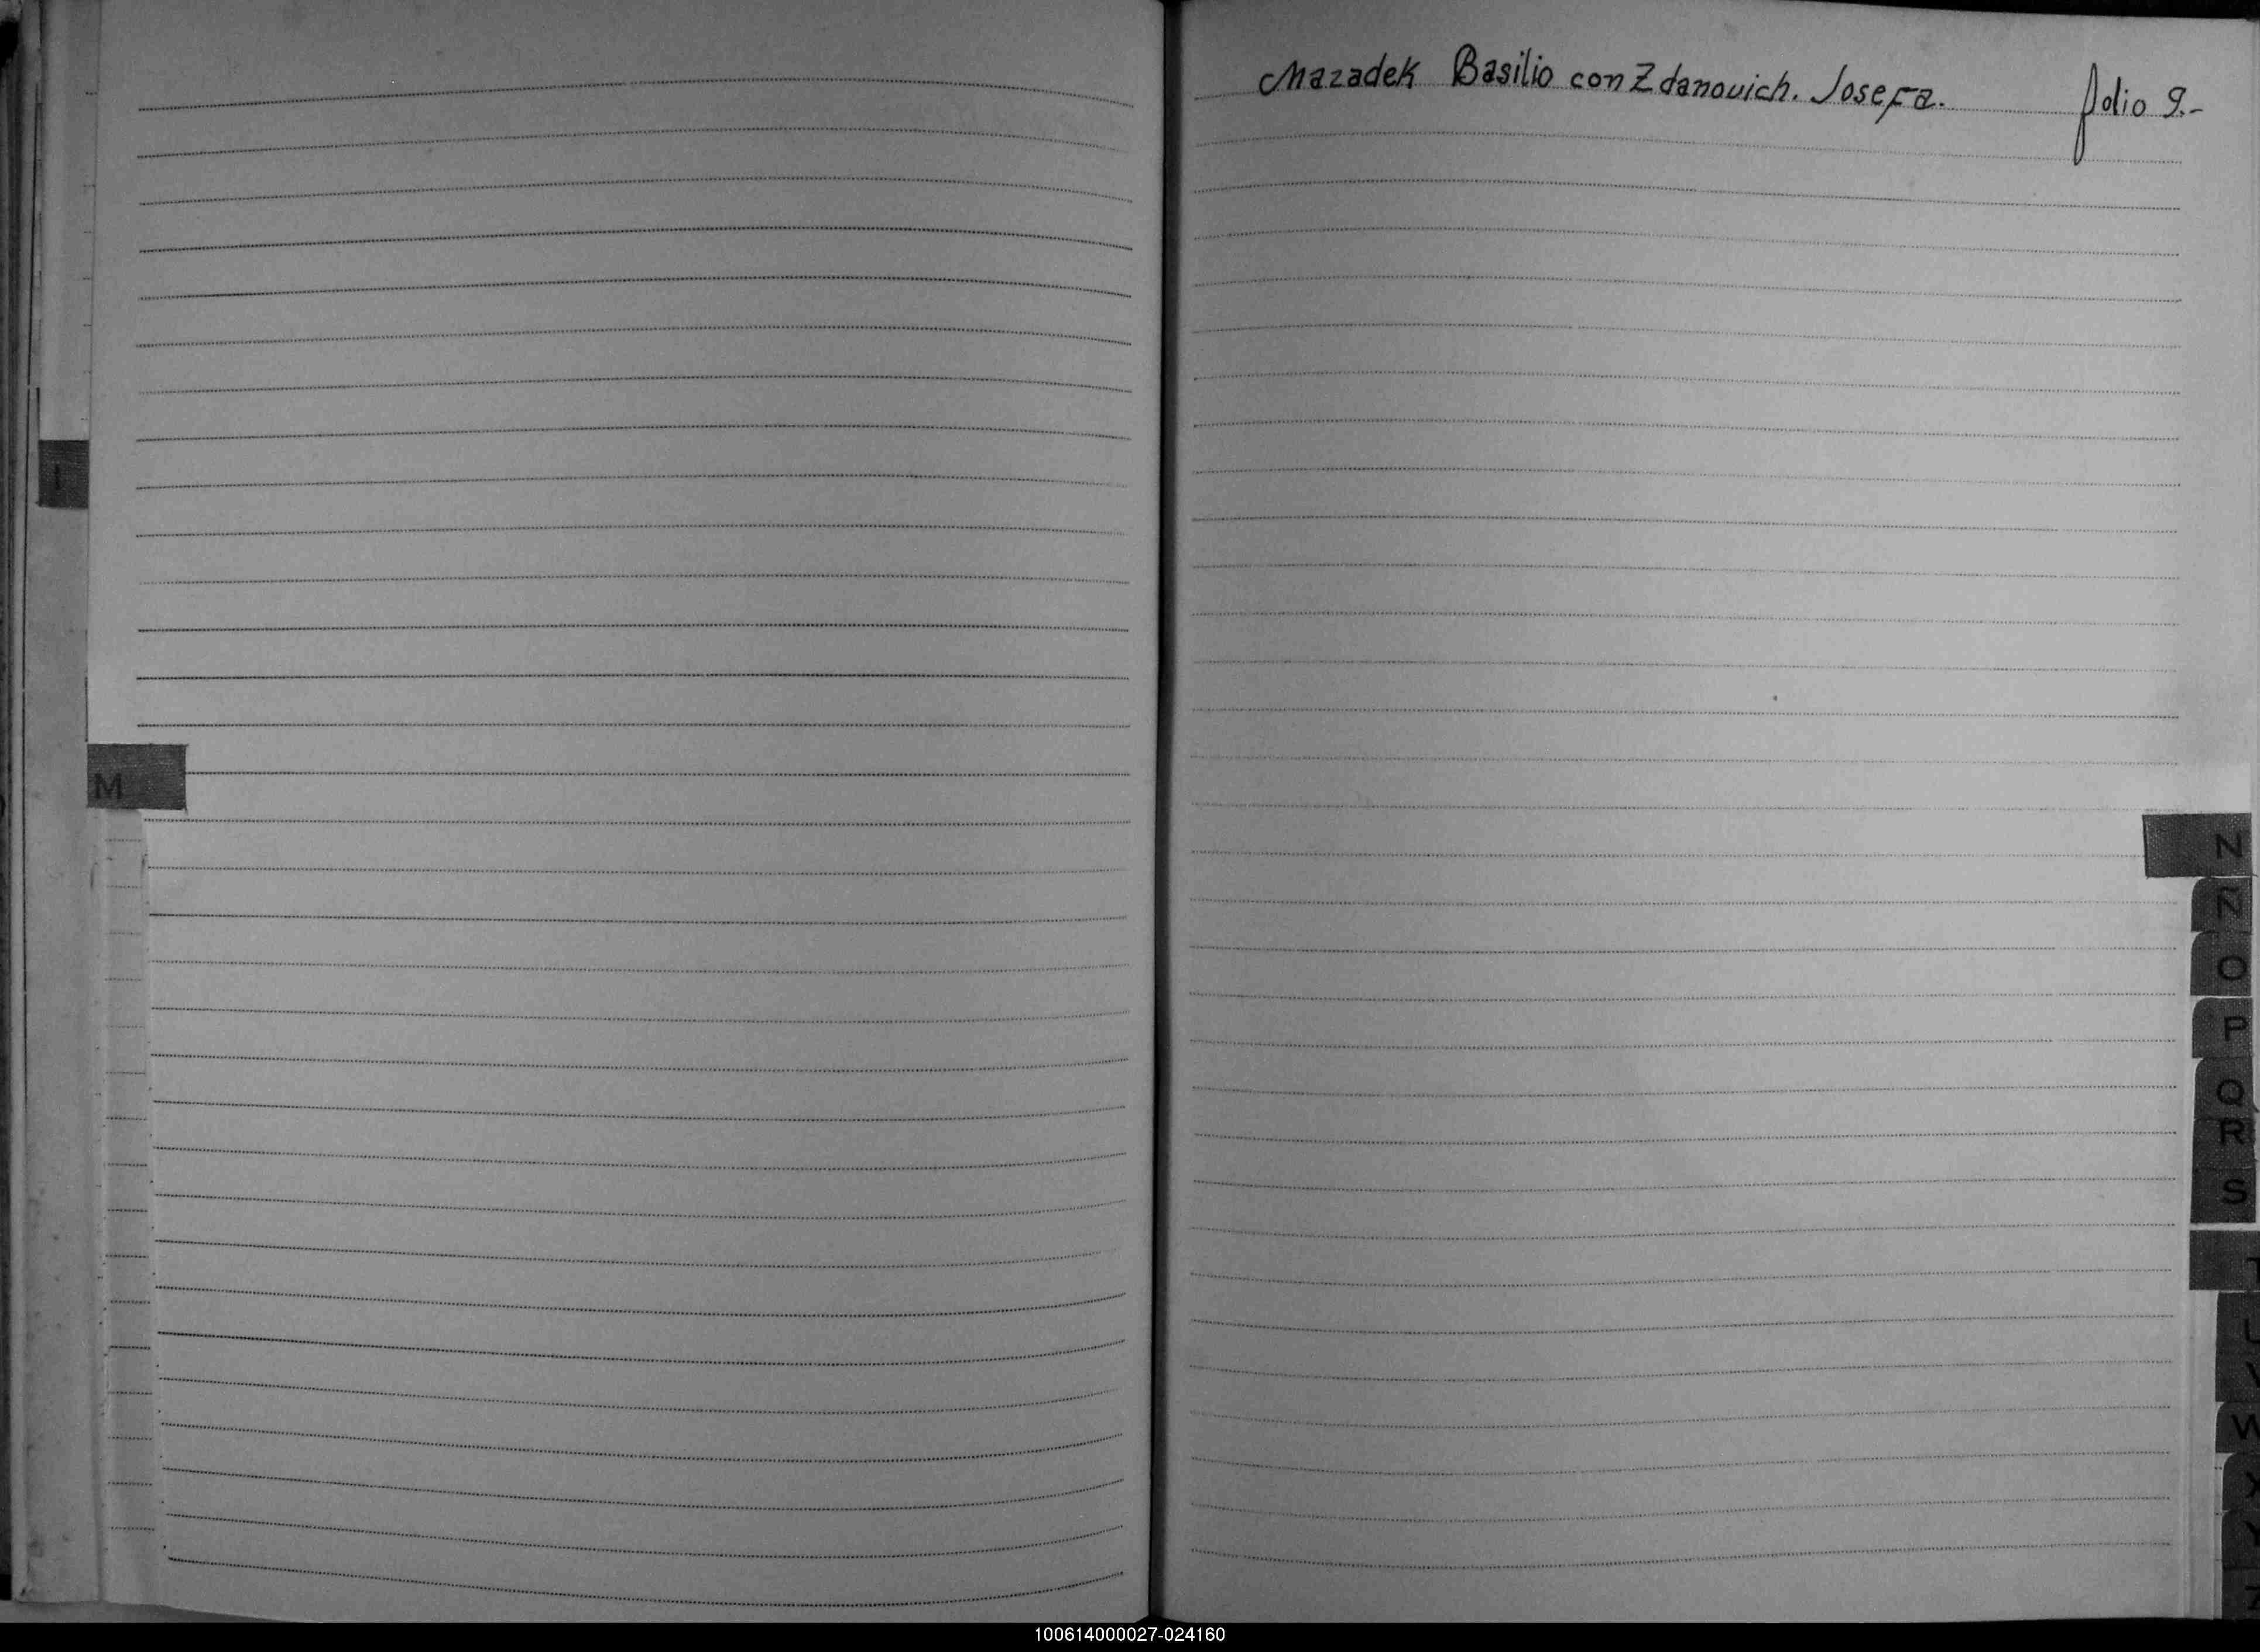 Mazadek Basilio con Zdanovich. Josefa. folio 9.-
I
M
N
Ñ
O
P
Q
R
S
T
U
V
W
X
Y
Z
100614000027-024160